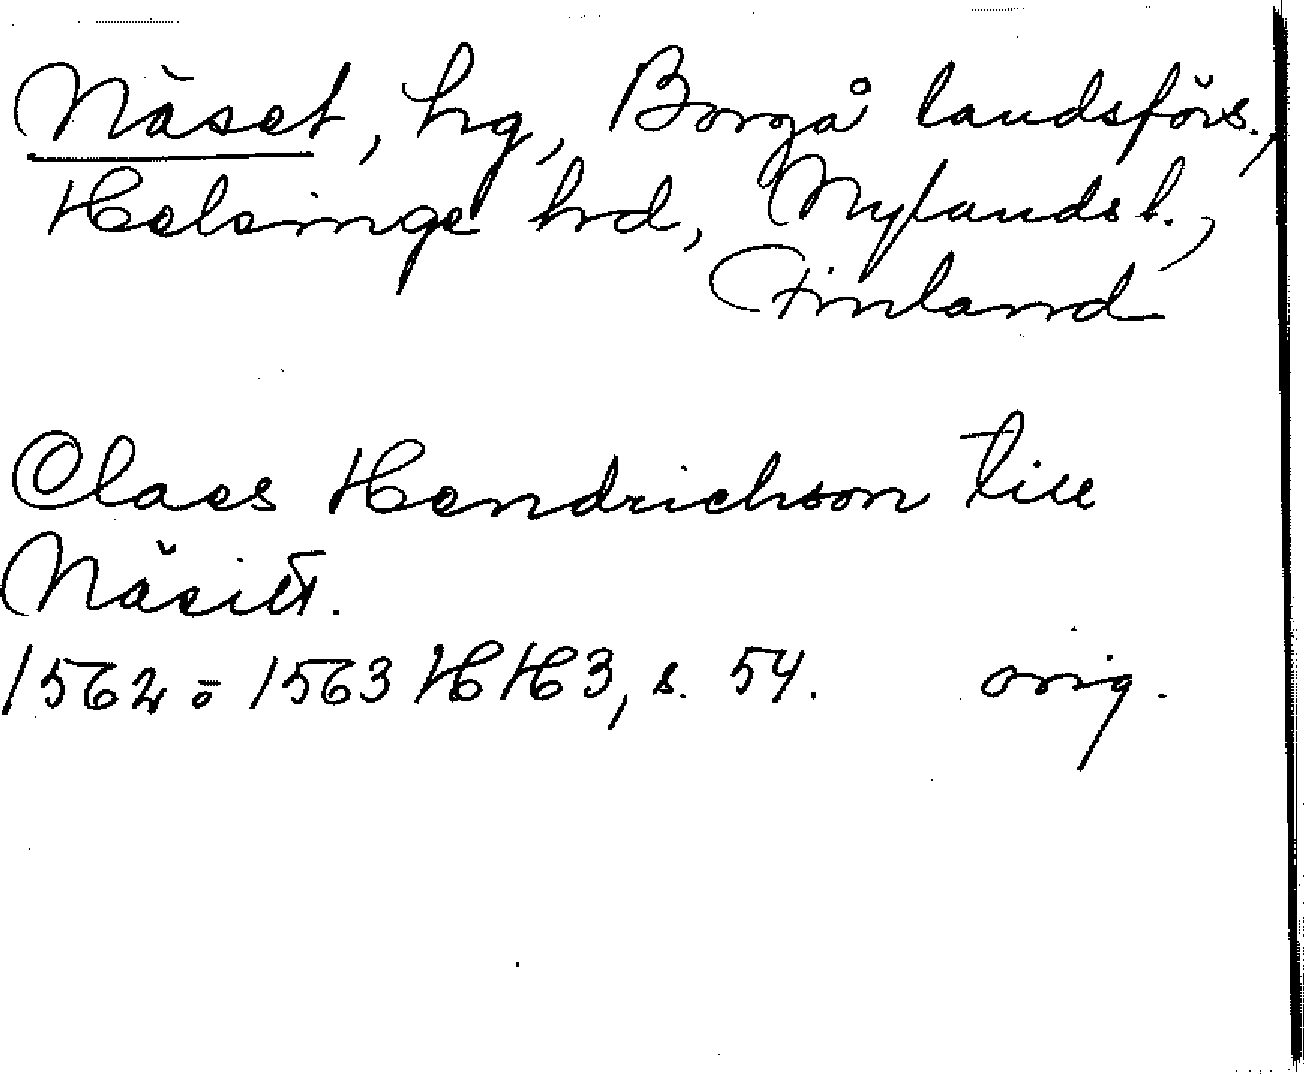 Näset, hg, Borgå landsförs.,
Helsinge hd, Nylands l.,
Finland
Claes Hendrichson till
Näsitt.
1562 ō 1563 HH3, s. 54. orig.